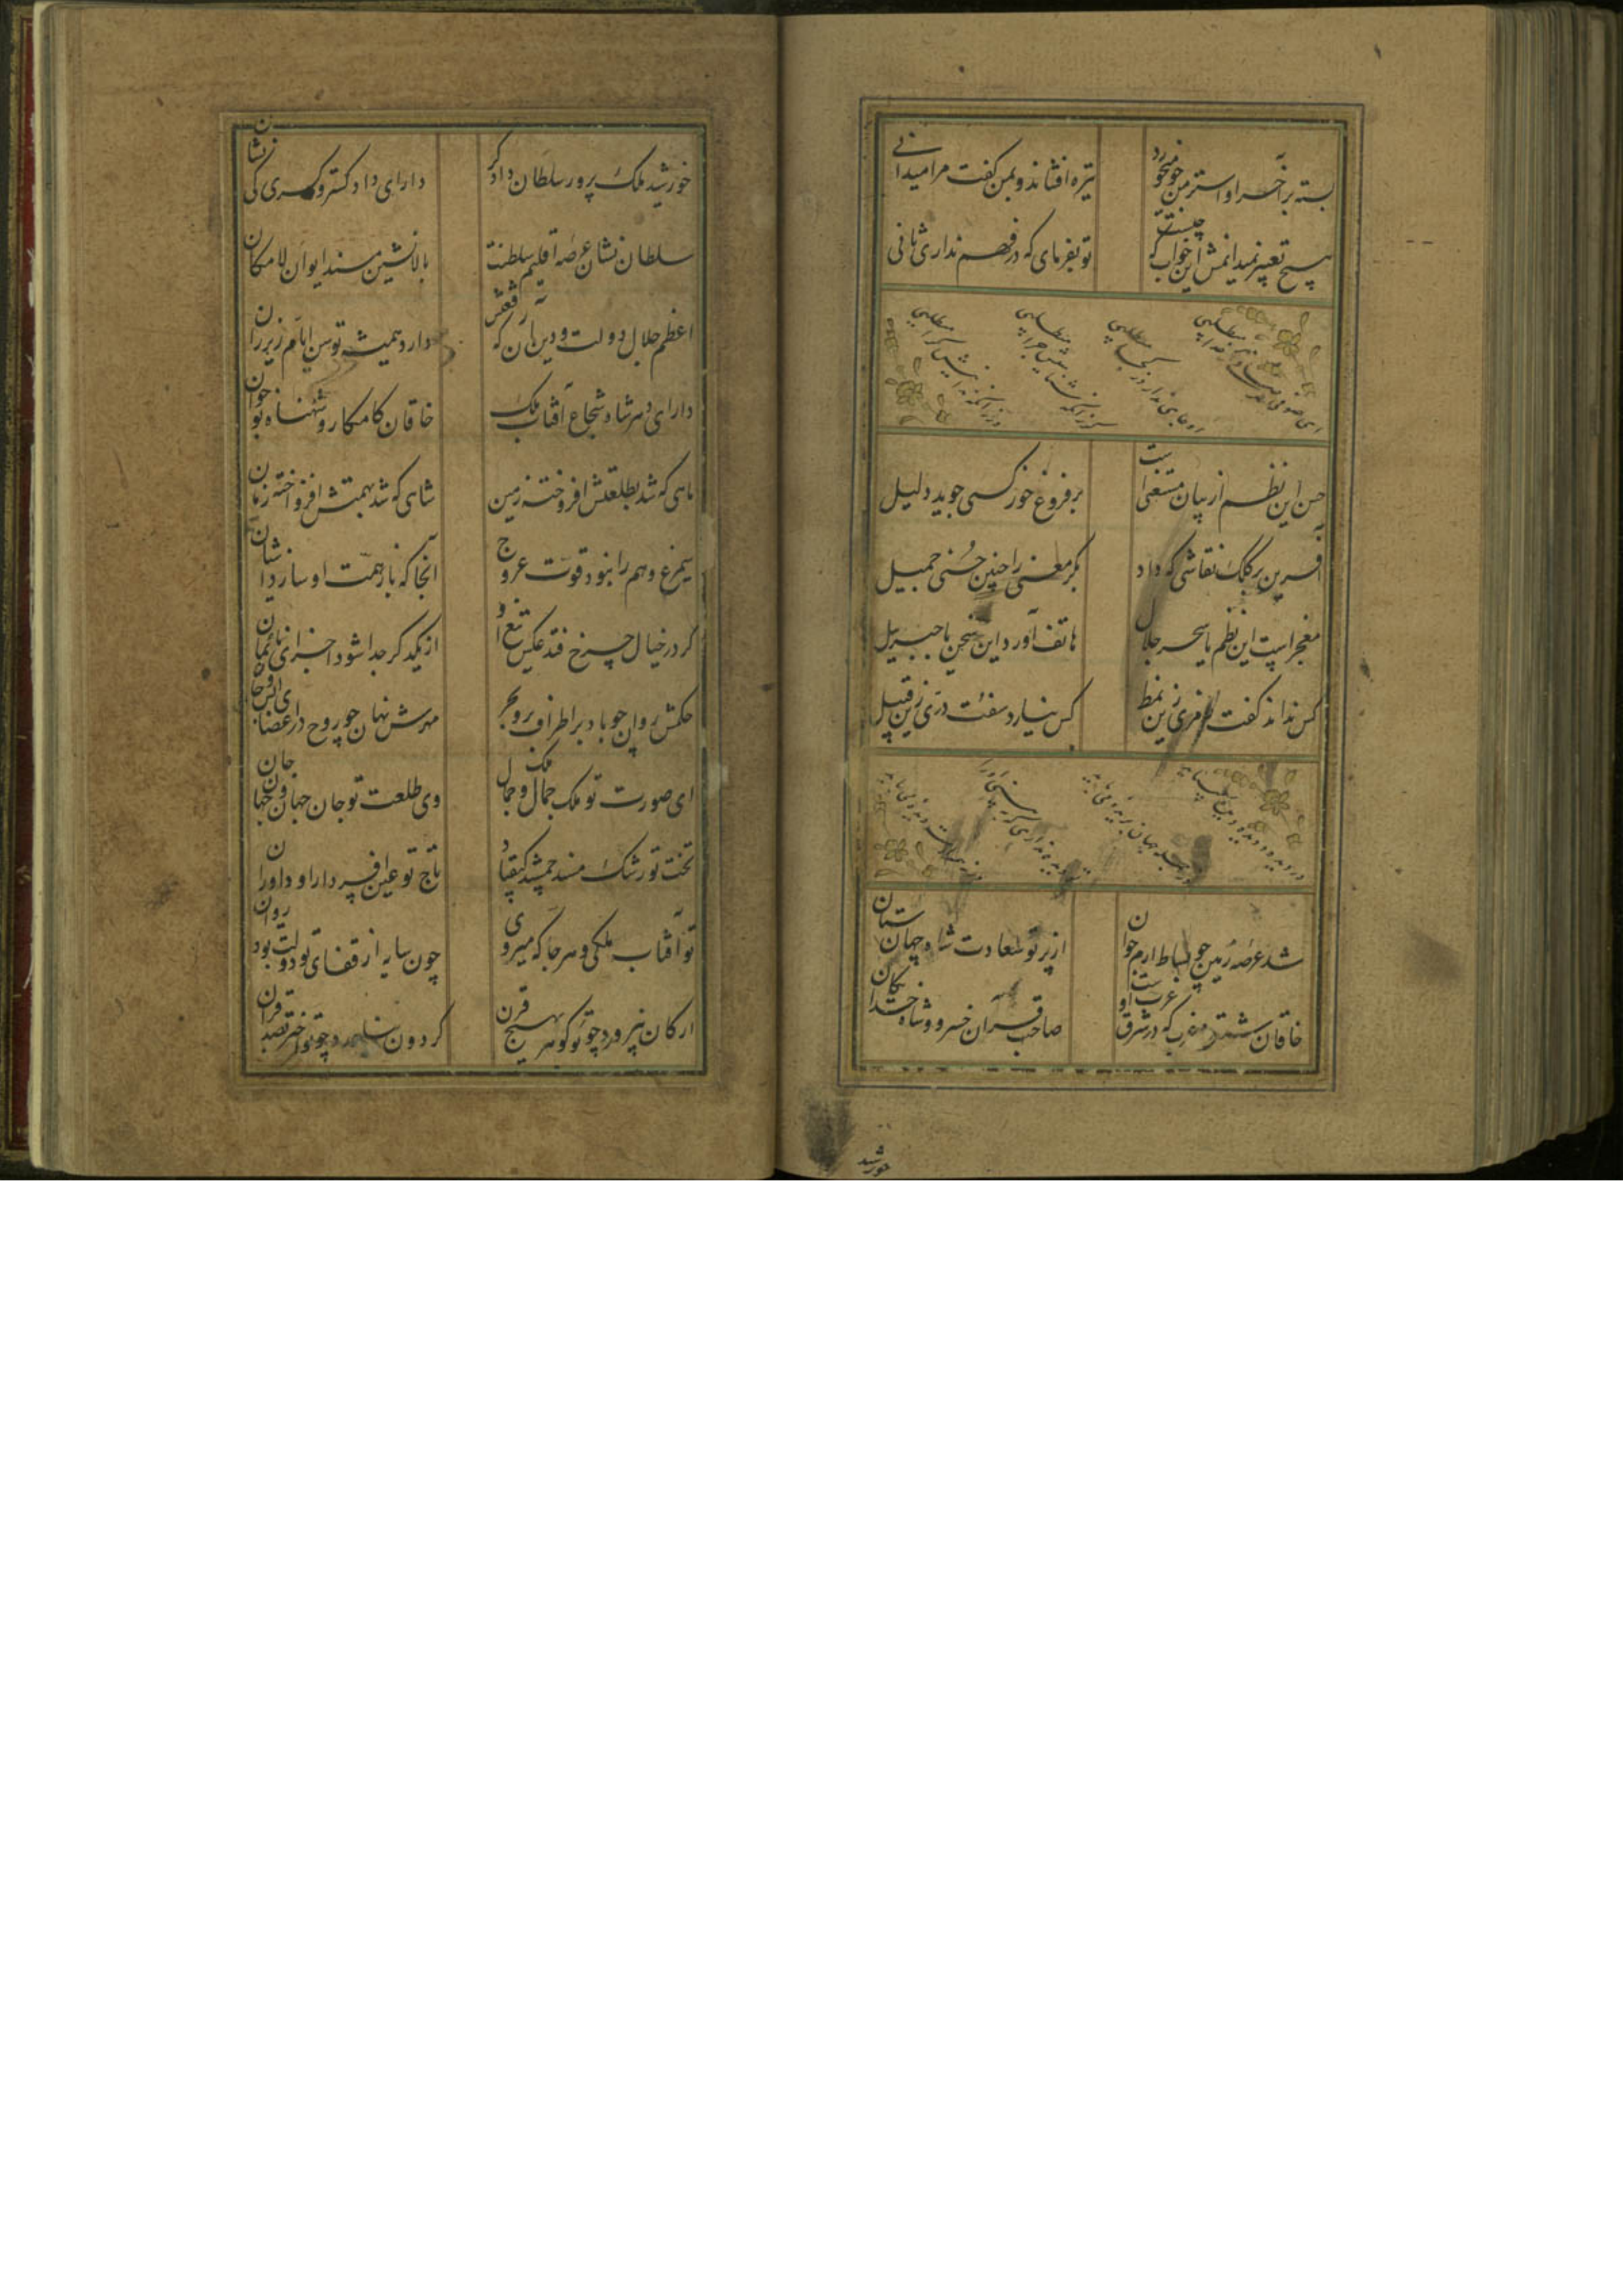 بسته بر آخر او استر من جو میخورد
تیزه افشاند و بمن گفت مرا میدانی
هیچ تعبیر نمیدانمش این خواب که چیست
تو بفرمای که در فهم نداری ثانی
حسن این نظم از بیان مستغنی است
بر فروغ خور کسی جوید دلیل
آفرین بر کلک نقاشی که داد
بکر معنی را چنین حسنی جمیل
معجز است این نظم یا سحر حلال
هاتف آورد این سخن یا جبرییل
کس نداند گفت رمزی زین نمط
کس نیارد سفت دری زین قبیل
شد عرصه زمین چو بساط ارم جوان
از پرتو سعادت شاه جهان ستان
خاقان شرق و غرب که در شرق و غرب اوست
صاحب قران خسرو و شاه خدایگان
خورشید
خورشید ملک پرور سلطان دادگر
دارای دادگستر و کسری کی نشان
سلطان نشان عرصه اقلیم سلطنت
بالانشین مسند ایوان لامکان
اعظم جلال دولت و دین آن که رفعتش
دارد همیشه توسن ایام زیر ران
دارای دهر شاه شجاع آفتاب ملک
خاقان کامکار و شهنشاه نوجوان
ماهی که شد بطلعتش افروخته زمین
شاهی که شد بهمتش افراخته زمان
سیمرغ وهم را نبود قوت عروج
آنجا که باز همت او سازد آشیان
گر در خیال چرخ فتد عکس تیغ او
از یکدگر جدا شود اجزای آسمان
حکمش روان چو باد بر اطراف بر و بحر
مهرش نهان چو روح در اعضای انس و جان
ای صورت تو ملک جمال و جمال ملک
وی طلعت تو جان جهان و جهان جان
تخت تو رشک مسند جمشید و کیقباد
تاج تو غبن افسر دارا و اردوان
تو آفتاب ملکی و هر جا که میروی
چون سایه از قفای تو دولت بود روان
ارکان نپرورد چو تو گوهر بهیچ قرن
گردون نیاورد چو تو اختر بصد قران